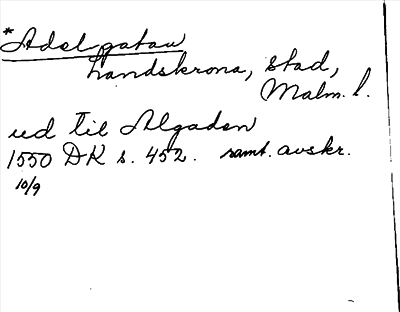 *Adelgatan
Landskrona, stad,
Malm. l.
ud til Algaden
1550 DK s. 452. samt. avskr.
10/9